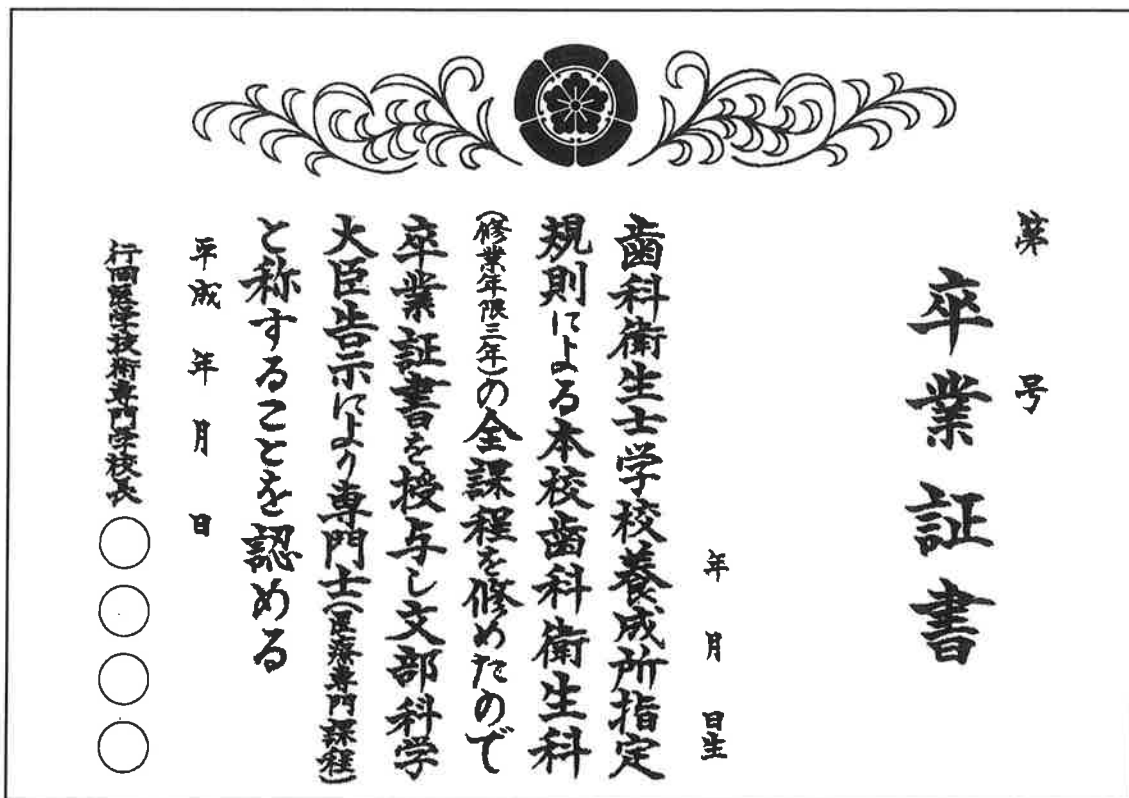 第　号
卒業証書
年　月　日生
歯科衛生士学校養成所指定
規則による本校歯科衛生科
(修業年限三年)の全課程を修めたので
卒業証書を授与し文部科学
大臣告示により専門士(医療専門課程)
と称することを認める
平成　年　月　日
行岡医学技術専門学校長　○○○○